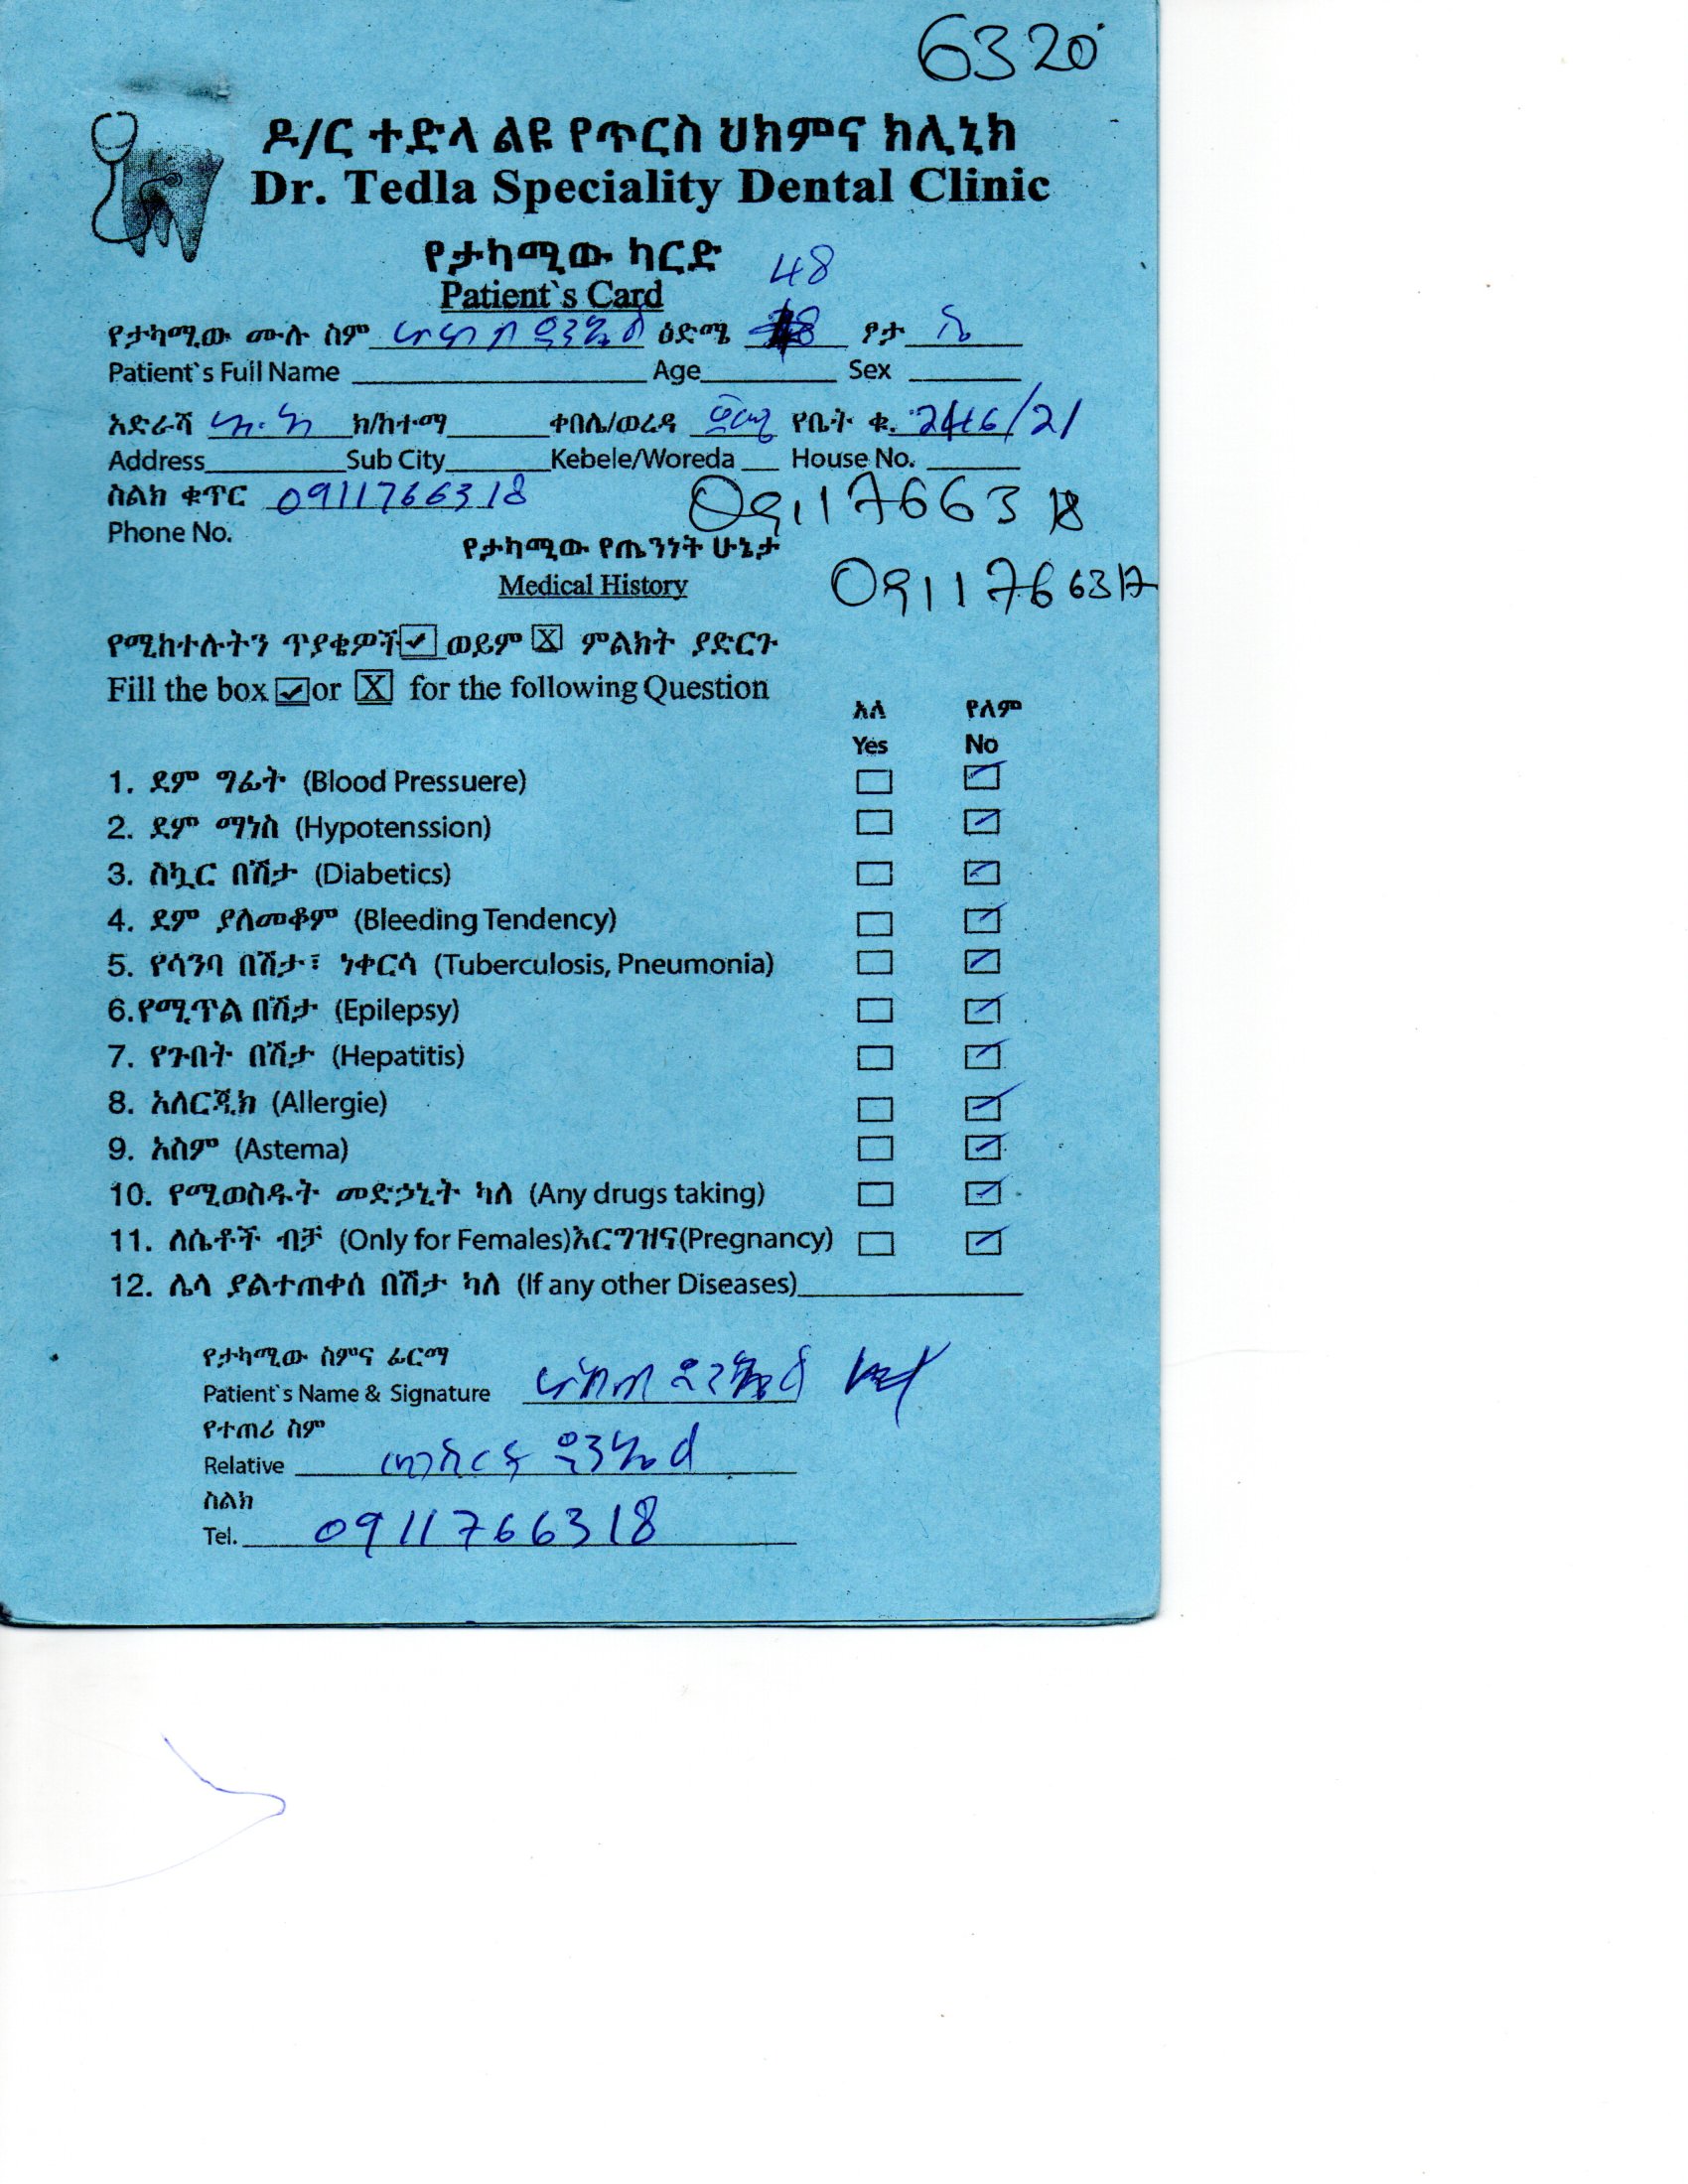 6320
ዶ/ር ተድላ ልዩ የጥርስ ህክምና ክሊኒክ
Dr. Tedla Speciality Dental Clinic
የታካሚው ካርድ
48
Patient`s Card
የታካሚው ሙሉ ስም ዕድሜ ፆታ
Patient`s Full Name Age Sex
አድራሻ ክ/ከተማ ቀበሌ/ወረዳ የቤት ቁ. 2416/21
Address Sub City Kebele/Woreda House No.
ስልክ ቁጥር 0911766318 0911766318
Phone No.
የታካሚው የጤንነት ሁኔታ
Medical History 0911766317
የሚከተሉትን ጥያቄዎች ወይም X ምልክት ያድርጉ
Fill the box or X for the following Question
አለ የለም
Yes No
1. ደም ግፊት (Blood Pressuere)
2. ደም ማነስ (Hypotenssion)
3. ስኳር በሽታ (Diabetics)
4. ደም ያለመቆም (Bleeding Tendency)
5. የሳንባ በሽታ፣ ነቀርሳ (Tuberculosis, Pneumonia)
6.የሚጥል በሽታ (Epilepsy)
7. የጉበት በሽታ (Hepatitis)
8. አለርጂክ (Allergie)
9. አስም (Astema)
10. የሚወስዱት መድኃኒት ካለ (Any drugs taking)
11. ለሴቶች ብቻ (Only for Females)እርግዝና(Pregnancy)
12. ሌላ ያልተጠቀሰ በሽታ ካለ (If any other Diseases)
የታካሚው ስምና ፊርማ
Patient`s Name & Signature
የተጠሪ ስም
Relative ዳንኤል
ስልክ
Tel. 0911766318